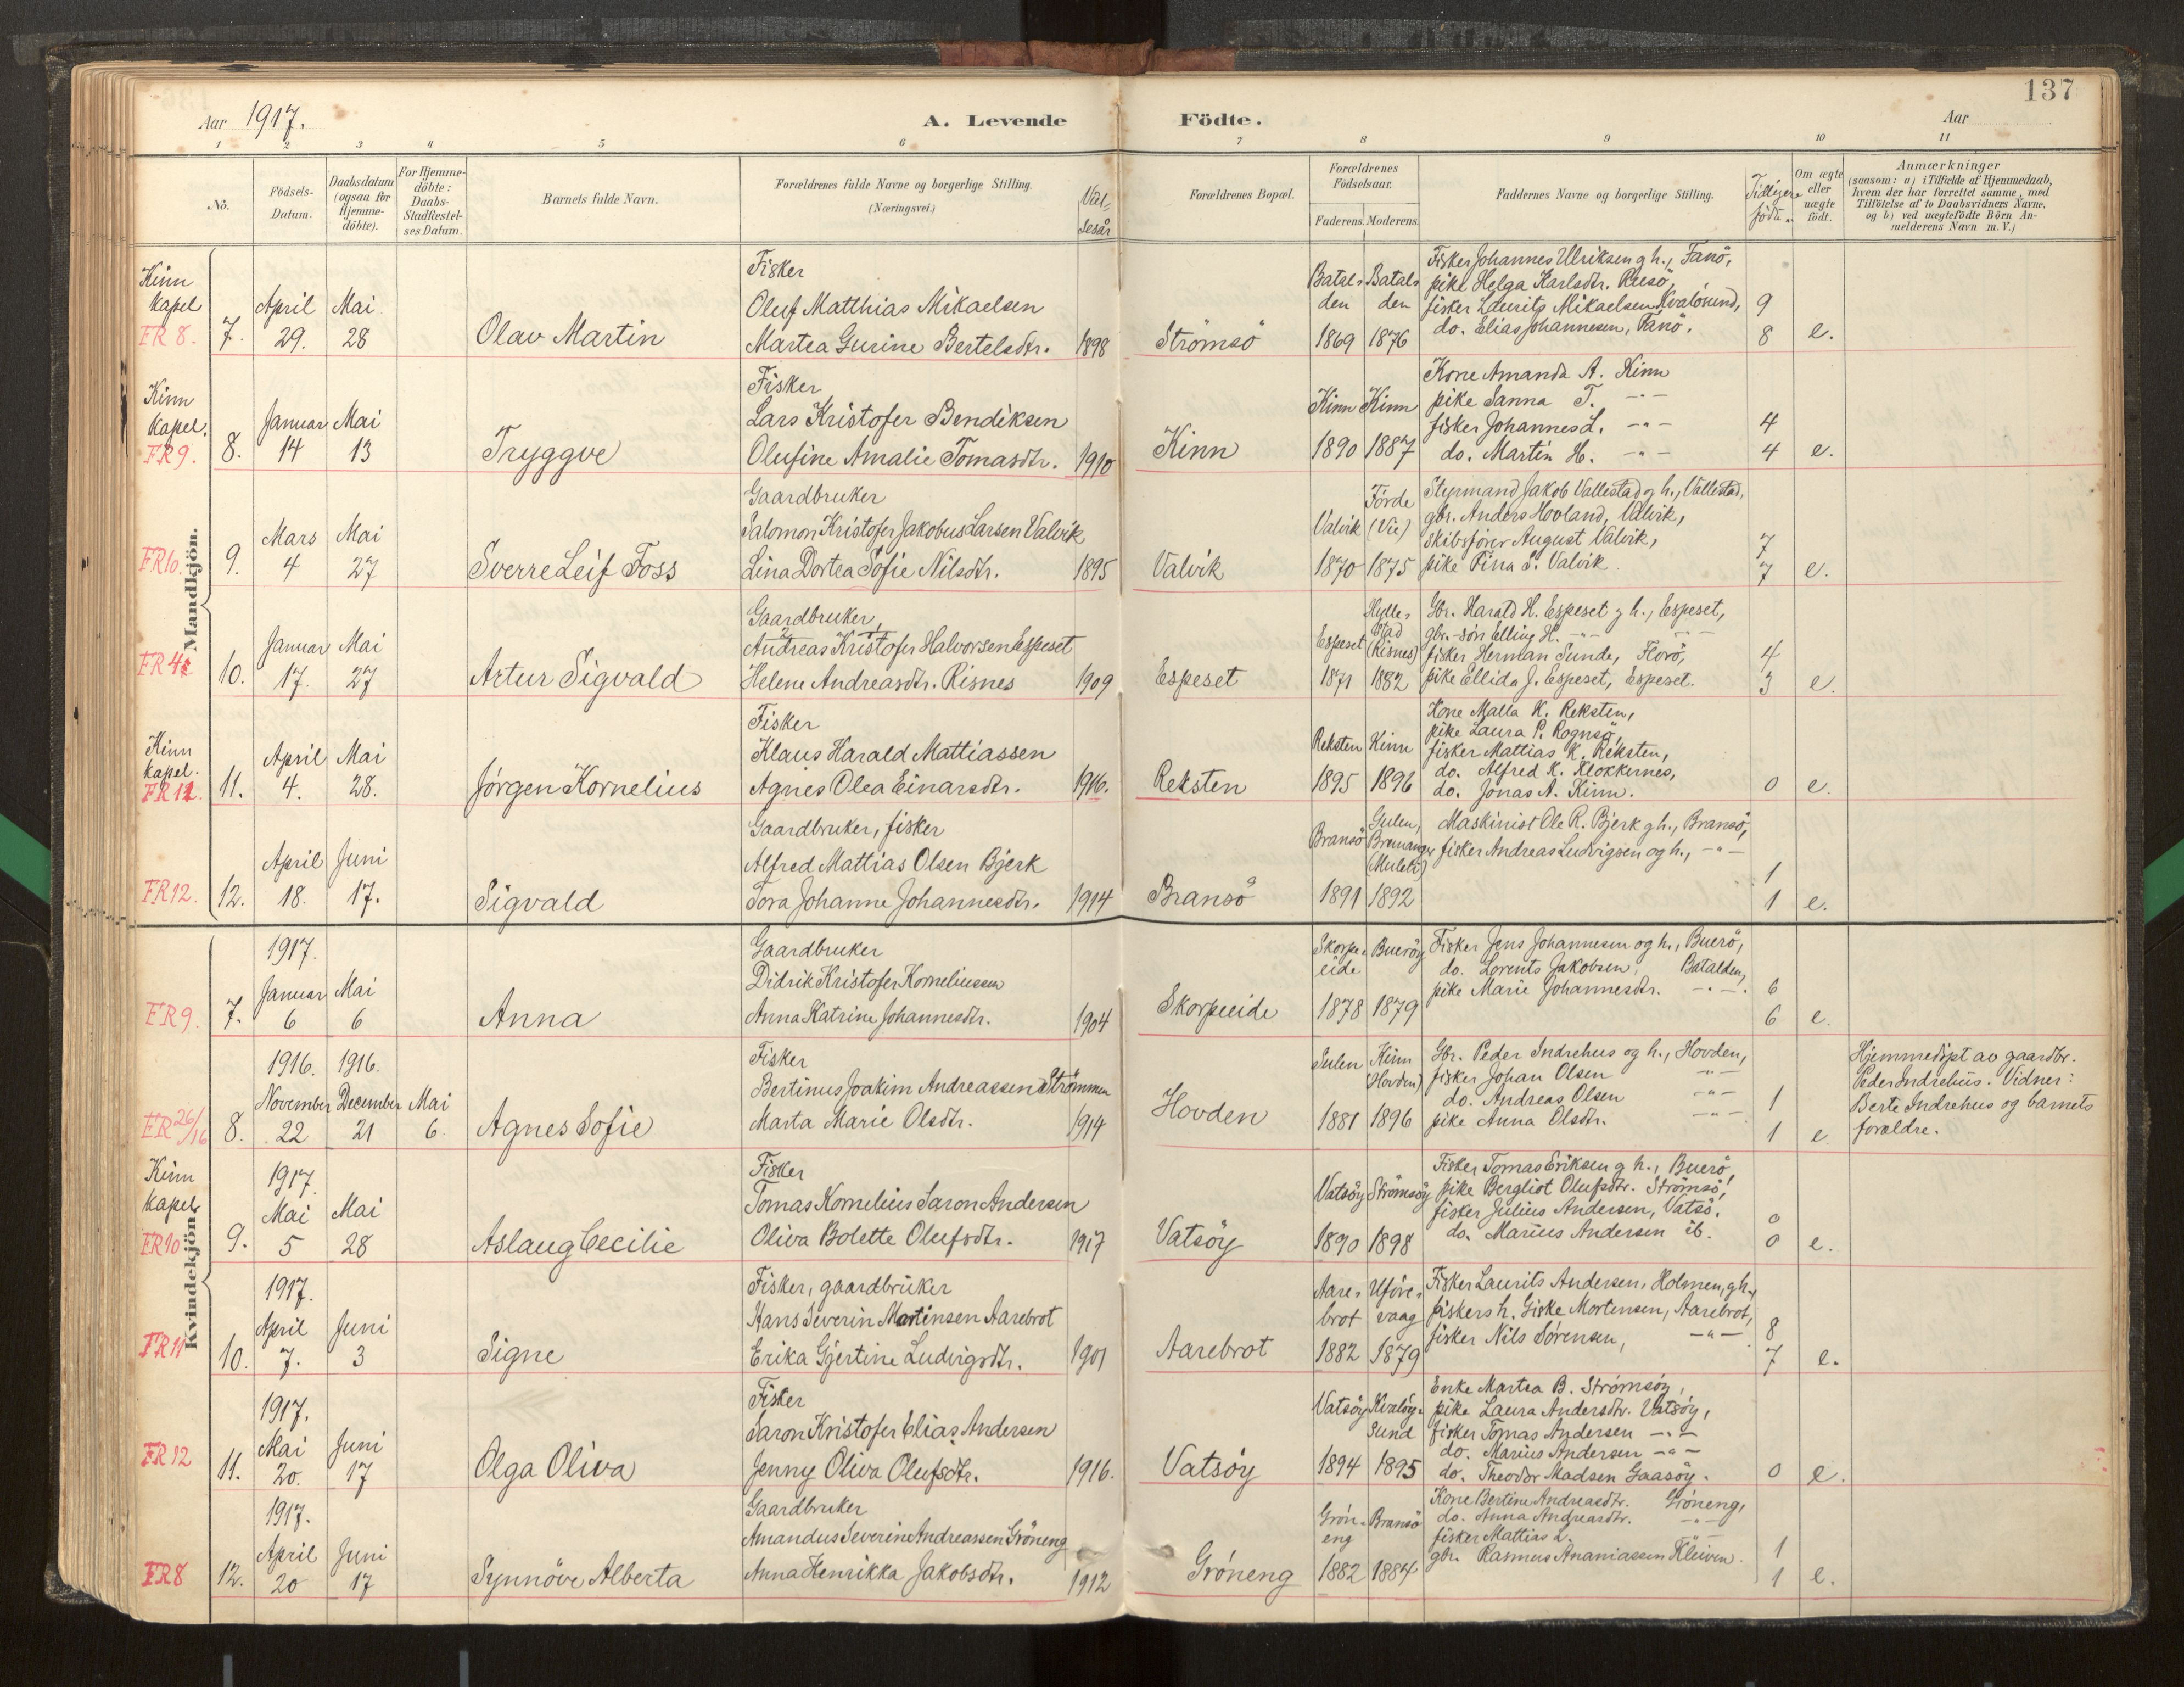 137
Aar 1917.
A. Levende Födte.
Aar
1 2 3 4 5 6 7 8 9 10 11
Nö.
Födsels-Datum.
Daabsdatum (ogsaa for Hjemme-döbte).
For Hjemme-döbte: Daabs-Stadfæstel-ses Datum.
Barnets fulde Navn.
Forældrenes fulde Navne og borgerlige Stilling.
(Næringsvei.)
Viel-sesår
Forældrenes Bopæl.
Forældrenes Födselsaar.
Faderens. Moderens.
Faddernes Navne og borgerlige Stilling.
Tidligere födte.
Om ægte eller uægte födt.
Anmærkninger
(saasom: a) i Tilfælde af Hjemmedaab, hvem der har forrettet samme, med Tilföielse af to Daabsvidners Navne, og b) ved uægtefödte Börn An-melderens Navn m. V.)
Mandkjön.
Kinn kapel
FR 8. 7. April 29. Mai 28
Olav Martin
Fisker
Oluf Matthias Mikaelsen
Martea Gurine Bertelsdtr. 1898
Strömsö
Batalden 1869 Batalden 1876
Fisker Johannes Ulriksen g h., Fanö,
pike Helga Karlsdtr. Reksö,
fisker Laurits Mikaelsen Kvalösund,
do. Elias Johannesen, Fanö.
9
8 e.
Kinn kapel.
FR 9. 8. Januar 14 Mai 13
Tryggve
Fisker
Lars Kristofer Bendiksen
Olufine Amalie Tomasdtr. 1910
Kinn
Kinn 1890 Kinn 1887
Kone Amanda A. Kinn
pike Sanna T. -"-
fisker Johannes L. -"-
do. Martin H. -"-
4
4 e.
FR 10. 9. Mars 4 Mai 27
Sverre Leif Foss
Gaardbruker
Salomon Kristofer Jakobus Larsen Valvik
Lina Dortea Sofie Nilsdtr. 1895
Valvik
Valvik 1870 Förde (Vie) 1875
Styrmand Jakob Vallestad g h., Vallestad,
gbr. Anders Hovland, Valvik,
skibsförer August Valvik,
pike Fina S. Valvik.
7
7 e.
FR 4 10. Januar 17. Mai 27
Artur Sigvald
Gaardbruker,
Andreas Kristofer Halvorsen Espeset
Helene Andreasdtr. Risnes 1909
Espeset
Espeset 1871 Hyllestad (Risnes) 1882
Gbr. Harald H. Espeset g h., Espeset,
gbr.-sön Elling H. -"- -"-
fisker Herman Sunde, Florö,
pike Ellida J. Espeset, Espeset.
4
3 e.
Kinn kapel.
FR 11. 11. April 4. Mai 28.
Jörgen Kornelius
Fisker
Klaus Harald Mattiassen
Agnes Olea Einarsdtr. 1916.
Reksten
Reksten 1895 Kinn 1896
Kone Malla K. Reksten,
pike Laura P. Rognsö,
fisker Mattias K. Reksten,
do. Alfred K. Klokkernes,
do. Jonas A. Kinn.
0 e.
FR 12. 12. April 18. Juni 17.
Sigvald
Gaardbruker, fisker
Alfred Mattias Olsen Bjerk
Tora Johanne Johannesdtr. 1914
Bransö
Bransö 1891 Gulen, Bremanger 1892
Maskinist Ole R. Bjerk g h., Bransö,
fisker Andreas Ludvigsen og h., -"-
1
1 e.
Kvindekjön
FR 9. 7. 1917. Januar 6 Mai 6
Anna
Gaardbruker
Didrik Kristofer Korneliussen
Anna Katrine Johannesdtr. 1904
Skorpeeide
Skorpeeide 1878 Bueröy 1879
Fisker Jens Johannesen og h., Buerö,
do. Lorents Jakobsen, Batalden,
pike Marie Johannesdtr. -"-.
6
6 e.
FR 26/16 8. 1916. November 22 1916. December 21 Mai 6.
Agnes Sofie
Fisker
Bertinus Joakim Andreassen Strömmen
Marta Marie Olsdtr. 1914
Hovden
Sulen 1881 Kinn (Hovden) 1896
Gbr. Peder Indrehus og h., Hovden,
fisker Johan Olsen -"-
do. Andreas Olsen -"-
pike Anna Olsdtr. -"-
1
1 e
Hjemmedöpt av gaardbr.
Peder Indrehus. Vidner:
Berte Indrehus og barnets
forældre.
Kinn kapel
FR 10 9. 1917. Mai 5 Mai 28
Aslaug Cecilie
Fisker
Tomas Kornelius Saron Andersen
Oliva Bolette Olufsdtr. 1917
Vatsöy
Vatsöy 1890 Strömsöy 1898
Fisker Tomas Eriksen g h., Buerö,
pike Bergliot Olufsdtr. Strömsö,
fisker Julius Andersen, Vatsö.
do. Marius Andersen ib.
0
0 e.
FR 11 10. 1917. April 7. Juni 3
Signe
Fisker, gaardbruker
Hans Severin Mortensen Aarebrot
Erika Gjertine Ludvigsdtr. 1901
Aarebrot
Aarebrot 1882 Uförevaag 1879
Fisker Laurits Andersen, Holmen, g h.,
fiskersh. Giske Mortensen, Aarebrot,
fisker Nils Sörensen, -"-
8
7 e.
FR 12 11. 1917. Mai 20. Juni 17
Olga Oliva
Fisker
Saron Kristofer Elias Andersen
Jenny Oliva Olufsdtr. 1916.
Vatsöy
Vatsöy 1894 Kvalöysund 1895
Enke Martea B. Strömsöy,
pike Laura Andersdtr. Vatsöy,
fisker Tomas Andersen -"-
do. Marius Andersen -"-
do. Theodor Madsen Gaasöy.
0 e.
FR 8 12. 1917. April 20 Juni 17
Synnöve Alberta
Gaardbruker
Amandus Severin Andreassen Gröneng
Anna Henrikka Jakobsdtr. 1912
Gröneng
Gröneng 1882 Bransö 1884
Kone Bertine Andreasdtr. Gröneng,
do. Anna Andreasdtr. -"-
fisker Mattias L. -"-
gbr. Rasmus Ananiassen Kleiven.
1
1 e.